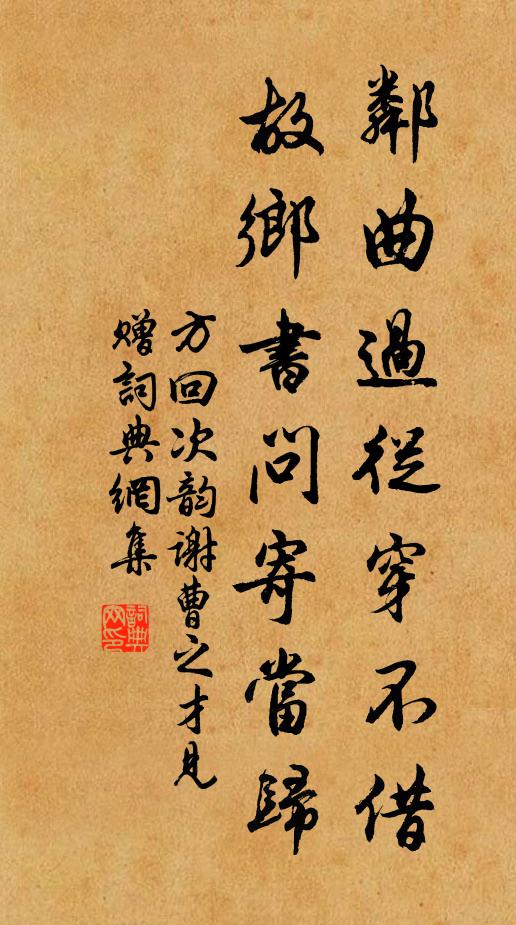 鄰曲過從穿不借
故鄉書問寄當歸
方回次韵謝曹之才見
贈詞典網集
詞典网印